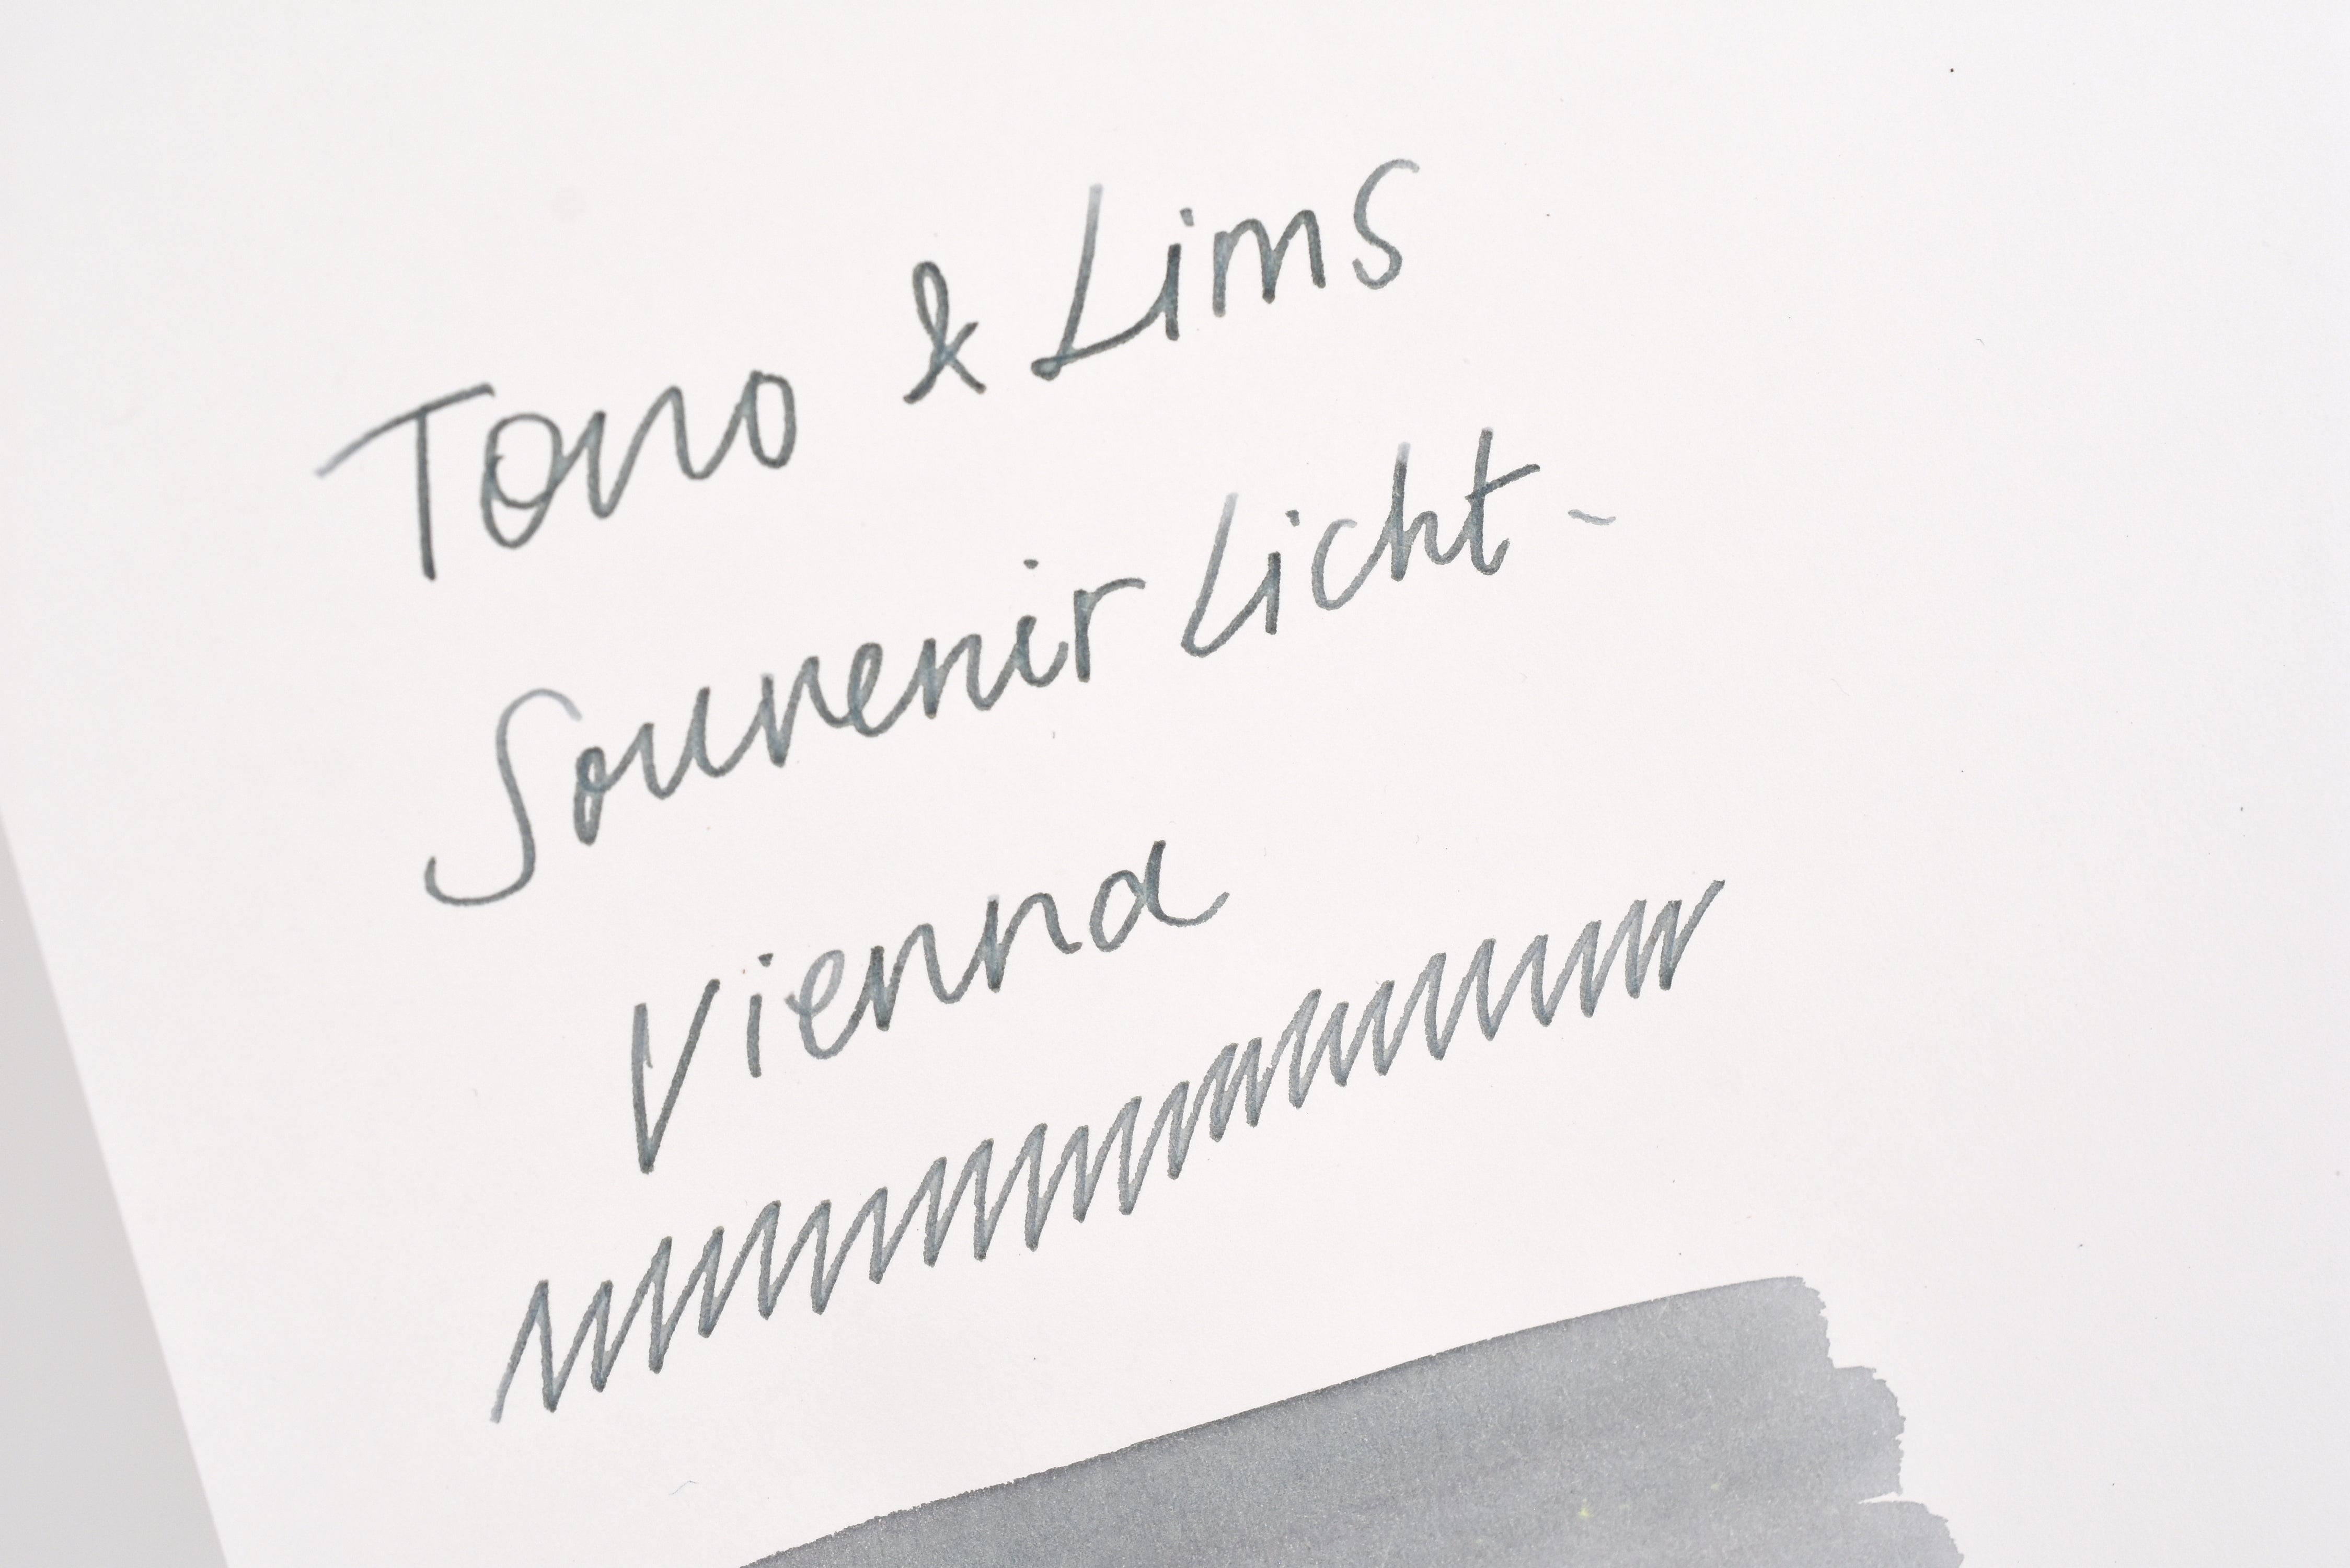 Tono & Lims
Souvenir Licht-
Vienna